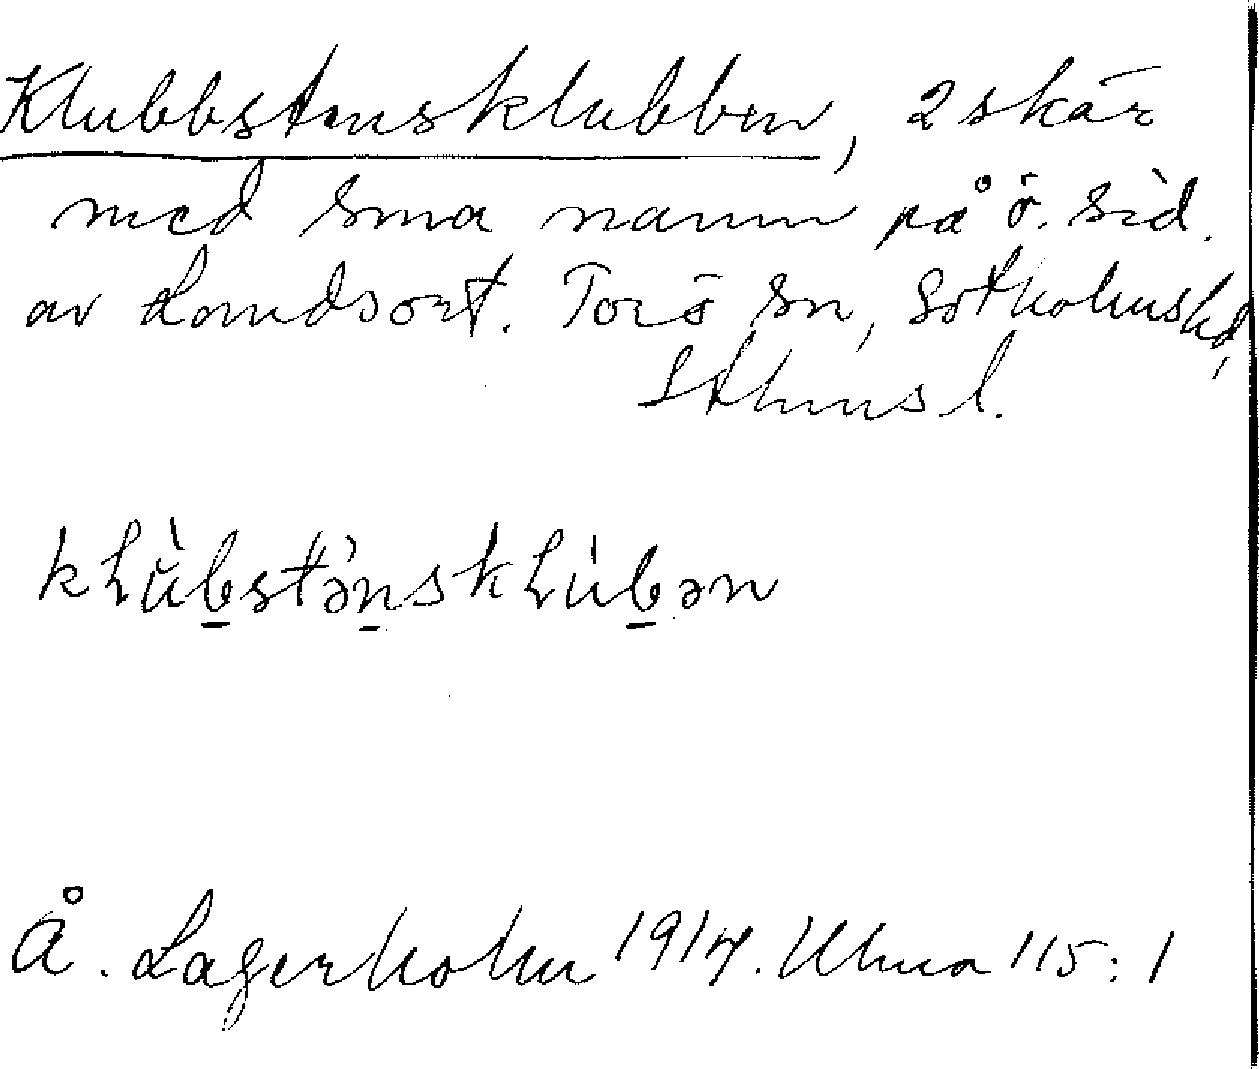 Klubbstensklubben, 2 skär
med sma namn på ö. sid.
av Landsort. Torö sn, Sotholms hd,
Sthms l.
kɫùbstə̀nskɫùbən
Å. Lagerholm 1914. Ulma 115:1